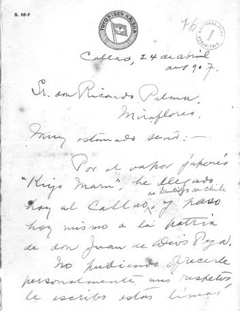 Callao, 24 de abril
de 1907.
Sr. don Ricardo Palma,
Miraflores.
Muy estimado señor:-
Por el vapor japonés
"Kiyo Maru", he llegado
de Santiago de Chile
hoy al Callao, y paso
hoy mismo a la patria
de don Juan de Dios Peza.
No pudiendo ofrecerle
personalmente mis respetos,
le escribo estas líneas